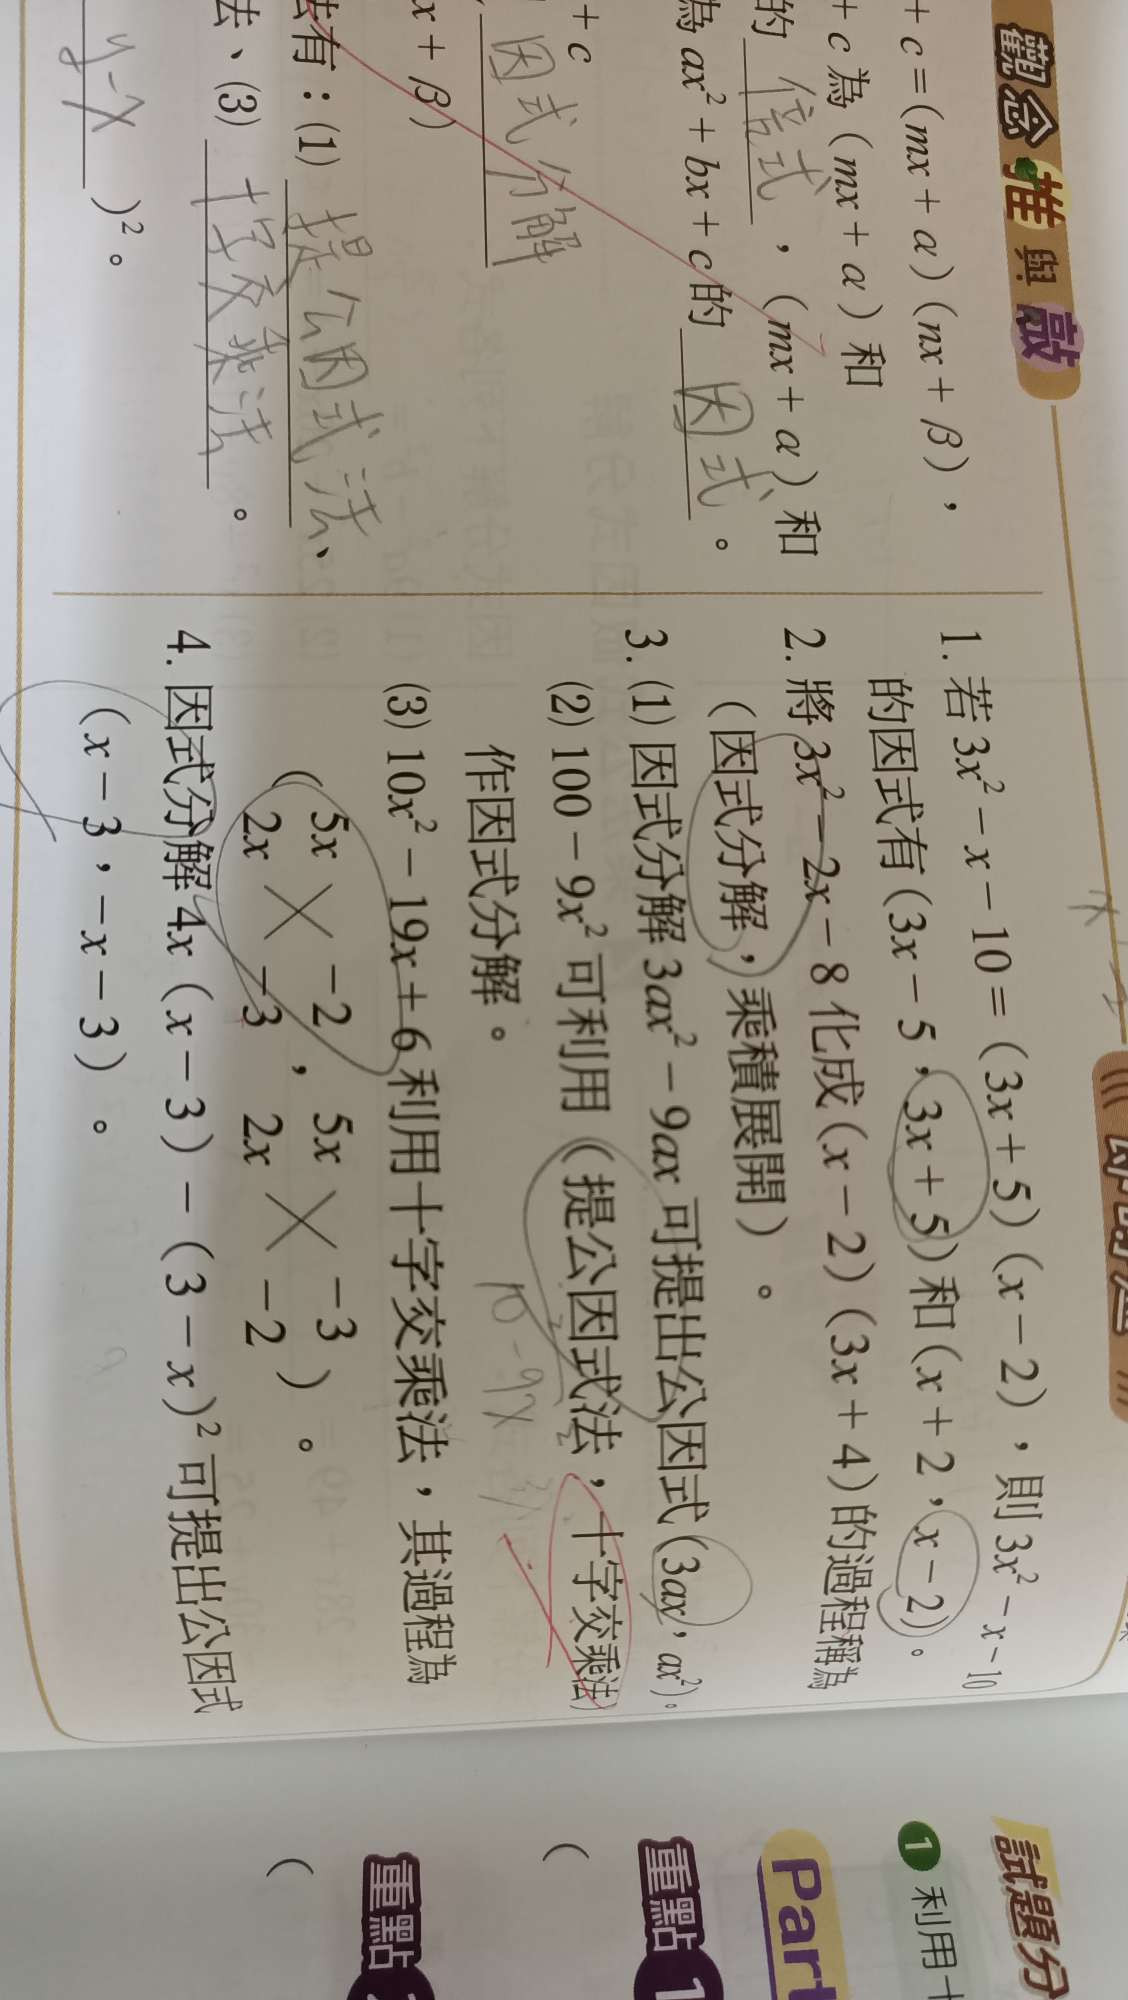 觀念推與敲
+ c = (mx + α)(nx + β),
+ c 為 (mx + α) 和
的 倍式,(mx + α) 和
為 ax² + bx + c 的 因式。
+ c
因式分解
x + β)
法有:(1) 提公因式法、
法、(3) 十字交乘法。
y-x )²。
1. 若 3x² - x - 10 = (3x + 5)(x - 2),則 3x² - x - 10
的因式有 (3x - 5,3x + 5) 和 (x + 2,x - 2)。
2. 將 3x² - 2x - 8 化成 (x - 2)(3x + 4) 的過程稱為
(因式分解,乘積展開)。
3. (1) 因式分解 3ax² - 9ax 可提出公因式 (3ax,ax²)。
(2) 100 - 9x² 可利用 (提公因式法,十字交乘法)
作因式分解。
(3) 10x² - 19x + 6 利用十字交乘法,其過程為
( 5x -2 , 5x -3
2x -3 2x -2 )。
4. 因式分解 4x (x - 3) - (3 - x)² 可提出公因式
(x - 3,-x - 3)。
試題分
1 利用十
Part
重點 1
(
重點
(